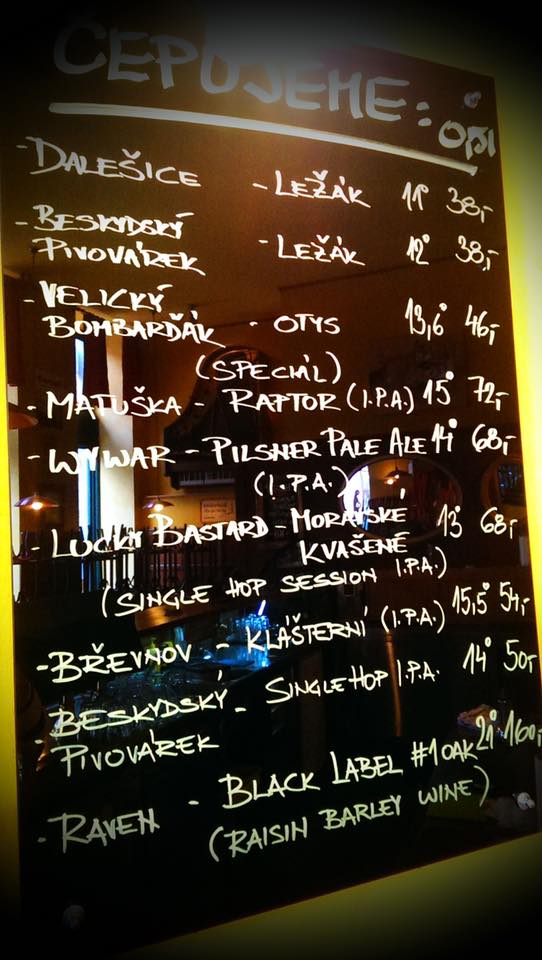 ČEPUJEME: 0,5l
- DALEŠICE - LEŽÁK 11° 38,-
- BESKYDSKÝ
PIVOVÁREK - LEŽÁK 12° 38,-
- VELICKÝ
BOMBARĎÁK - OTYS 13,6° 46,-
(SPECIÁL)
- MATUŠKA - RAPTOR (I.P.A.) 15° 72,-
- WYWAR - PILSNER PALE ALE 14° 68,-
(I.P.A.)
- LUCKY BASTARD - MORAVSKÉ 13° 68,-
KVAŠENÉ
(SINGLE HOP SESSION I.P.A.)
- BŘEVNOV - KLÁŠTERNÍ (I.P.A.) 15,5° 54,-
- BESKYDSKÝ - SINGLE HOP I.P.A. 14° 50,-
PIVOVÁREK
- RAVEN - BLACK LABEL #1 OAK 21° 160,-
(RAISIN BARLEY WINE)